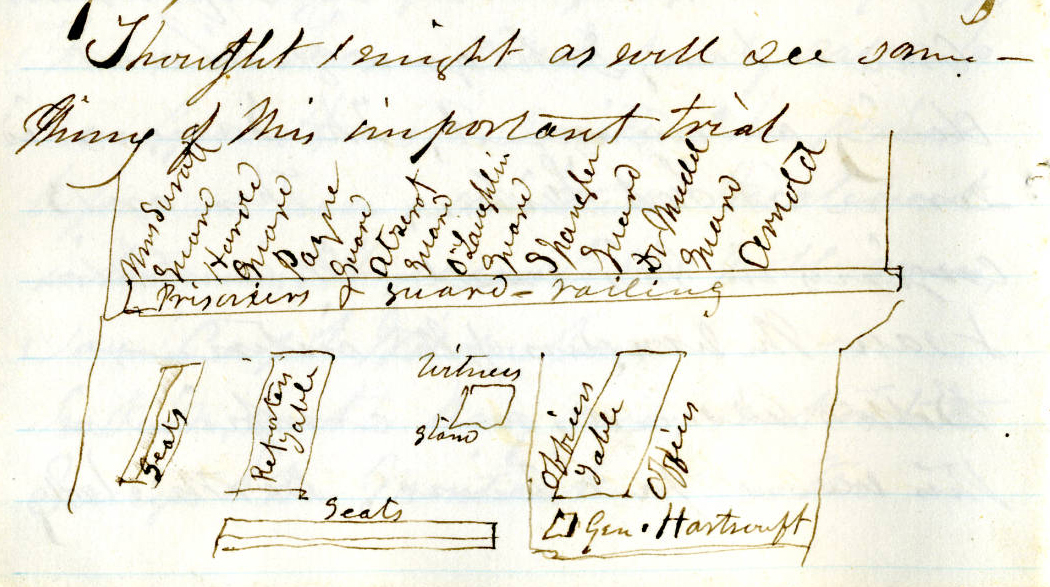 Thought I might as well see some-
thing of this important trial
Mrs Suratt
Guard
Harold
Guard
Payne
Guard
Atzerot
Guard
O'Laughlin
Guard
Spangler
Guard
Dr Mudd
Guard
Arnold
Prisoners & Guard - railing
Seats
Reporters
Table
Witness
Stand
Officers
Table
Officers
Seats
Gen. Hartranft